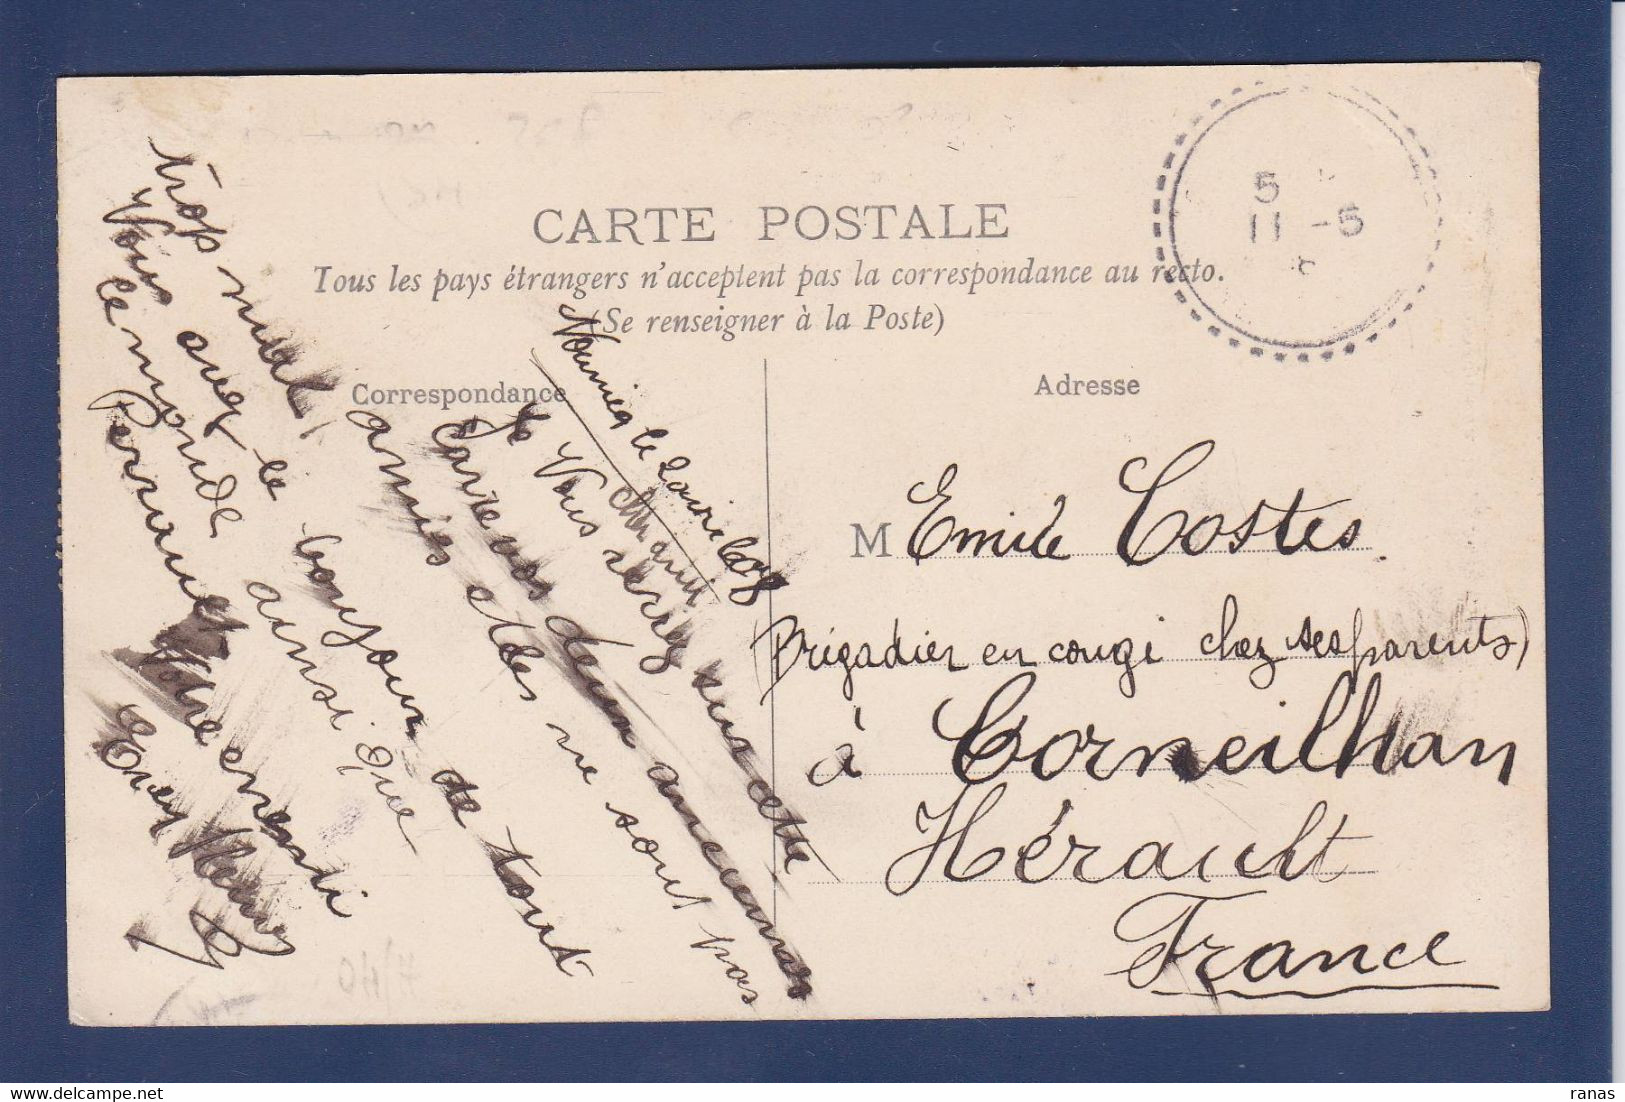 CARTE POSTALE
Tous les pays étrangers n'acceptent pas la correspondance au recto.
(Se renseigner à la Poste)
Correspondance
Adresse
5
11 -5
Nouméa le
Cher ami
Je Vous verrez sur cette
Carte vos deux anciennes
amies elles ne sont pas
trop mal,
Vous avez le bonjour de tout
le monde ainsi que
Votre ami
M Emile Costes
(Brigadier en congé chez ses parents)
à Corneilhan
Hérault
France
7/40
ranas